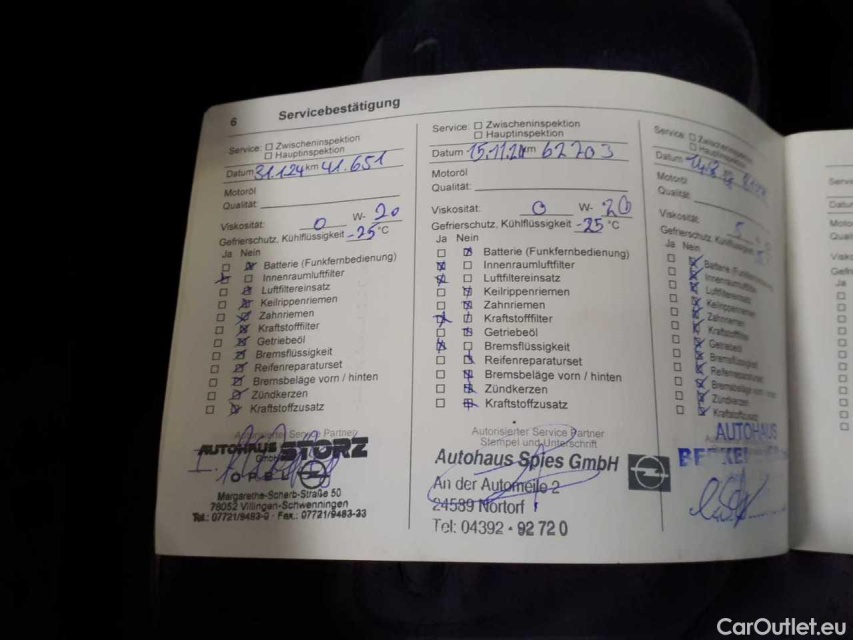 6 Servicebestätigung
Service: Zwischeninspektion
Hauptinspektion
Datum 31.1.24 km 41.651
Motoröl
Qualität:
Viskosität: 0 W- 20
Gefrierschutz, Kühlflüssigkeit -25 °C
Ja Nein
Batterie (Funkfernbedienung)
Innenraumluftfilter
Luftfiltereinsatz
Keilrippenriemen
Zahnriemen
Kraftstofffilter
Getriebeöl
Bremsflüssigkeit
Reifenreparaturset
Bremsbeläge vorn / hinten
Zündkerzen
Kraftstoffzusatz
Autorisierter Service Partner
AUTOHAUS STORZ
GmbH
OPEL
Margarethe-Scherb-Straße 50
78052 Villingen-Schwenningen
Tel.: 07721/9483-0 · Fax.: 07721/9483-33
Service: Zwischeninspektion
Hauptinspektion
Datum 15.11.24 km 62703
Motoröl
Qualität:
Viskosität: 0 W- 20
Gefrierschutz, Kühlflüssigkeit -25 °C
Ja Nein
Batterie (Funkfernbedienung)
Innenraumluftfilter
Luftfiltereinsatz
Keilrippenriemen
Zahnriemen
Kraftstofffilter
Getriebeöl
Bremsflüssigkeit
Reifenreparaturset
Bremsbeläge vorn / hinten
Zündkerzen
Kraftstoffzusatz
Autorisierter Service Partner
Stempel und Unterschrift
Autohaus Spies GmbH
An der Automeile 2
24589 Nortorf
Tel: 04392 - 92 72 0
Service:
Datum
Motoröl
Qualität:
Viskosität:
Gefrierschutz, Kühlflüssigkeit
Ja Nein
Batterie (Funkfernbedienung)
Innenraumluftfilter
Luftfiltereinsatz
Keilrippenriemen
Zahnriemen
Kraftstofffilter
Getriebeöl
Bremsflüssigkeit
Reifenreparaturset
Bremsbeläge vorn / hinten
Zündkerzen
Kraftstoffzusatz
AUTOHAUS
CarOutlet.eu